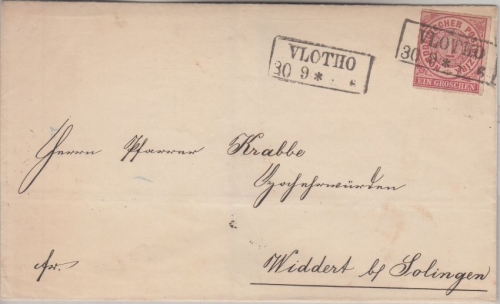 VLOTHO
30 9 *
VLOTHO
30 9 *
EIN GROSCHEN
Herrn Pfarrer Krabbe
Hochehrwürden
fr.
Widdert b/ Solingen